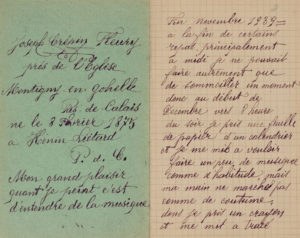 Joseph Crépin Fleury
près de l'Eglise
Montigny en gohelle
Pas de Calais
né le 8 Février 1875
à Hénin Liétard
P. de C.
Mon grand plaisir
quant je peint c'est
d'entendre de la musique
Fin novembre 1939
à la fin de certain
repas principalement
à midi je ne pouvait
faire autrement que
de sommeiller un moment
donc au début de
Décembre vers l'heure
du soir je pris une feuille
de papier d'un calendrier
et je me mis a vouloir
faire un peu de musique
comme d'habitude, mais
ma main ne marchait pas
comme de coutume,
donc je pris un crayon
et me mis a tracé